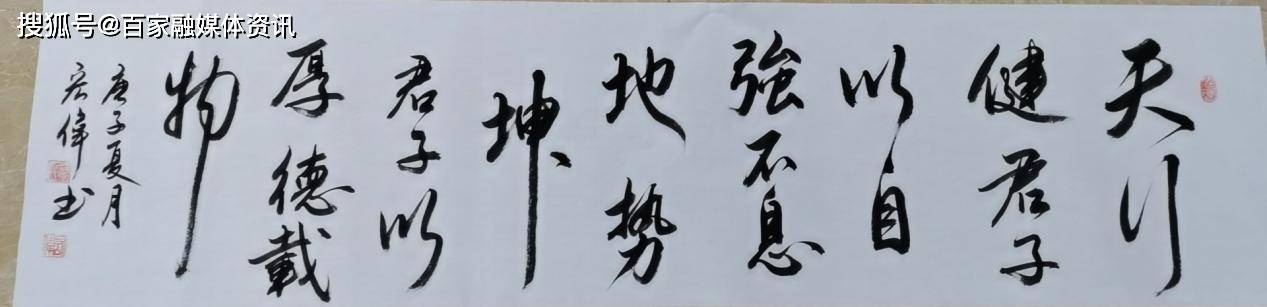 搜狐号@百家融媒体资讯
天行
健君子
以自
強不息
地势
坤
君子以
厚德載
物
庚子夏月
宏偉书